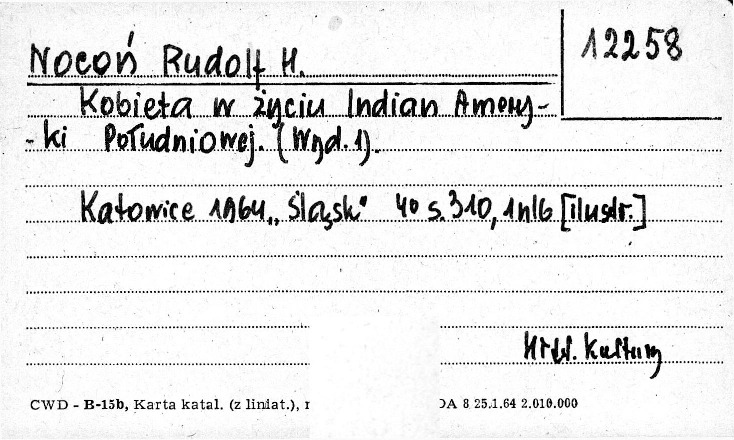 12258
Nocoń Rudolf H.
Kobieta w życiu Indian Amery-
-ki Południowej. (Wyd. 1).
Katowice 1964 „Śląsk" 4° s. 310, 1 nlb [ilustr.]
Kultury
CWD - B-15b, Karta katal. (z liniat.), DA 8 25.1.64 2.010.000